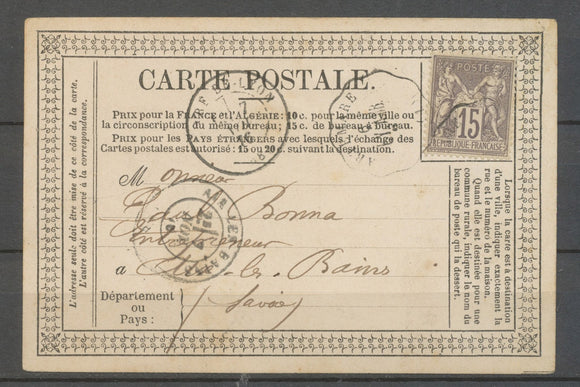 CARTE POSTALE.
POSTE
15
RÉPUBLIQUE FRANÇAISE
GARE DE LYON
PRIX pour la FRANCE et l'ALGÉRIE: 10 c. pour la même ville ou
la circonscription du même bureau; 15 c. de bureau à bureau.
PRIX pour les PAYS ÉTRANGERS avec lesquels l'échange des
Cartes postales est autorisé: 15 ou 20 c. suivant la destination.
L'adresse seule doit être mise de ce côté de la carte.
L'autre côté est réservé à la correspondance.
Lorsque la carte est à destination
d'une ville, indiquer exactement la
rue et le numéro de la maison.
Quand elle est destinée pour une
commune rurale, indiquer le nom du
bureau de poste qui la dessert.
Monsieur
Bonna
Entrepreneur
à Aix-les-Bains
AIX-LES-BAINS
Département
ou
Pays:
(Savoie)